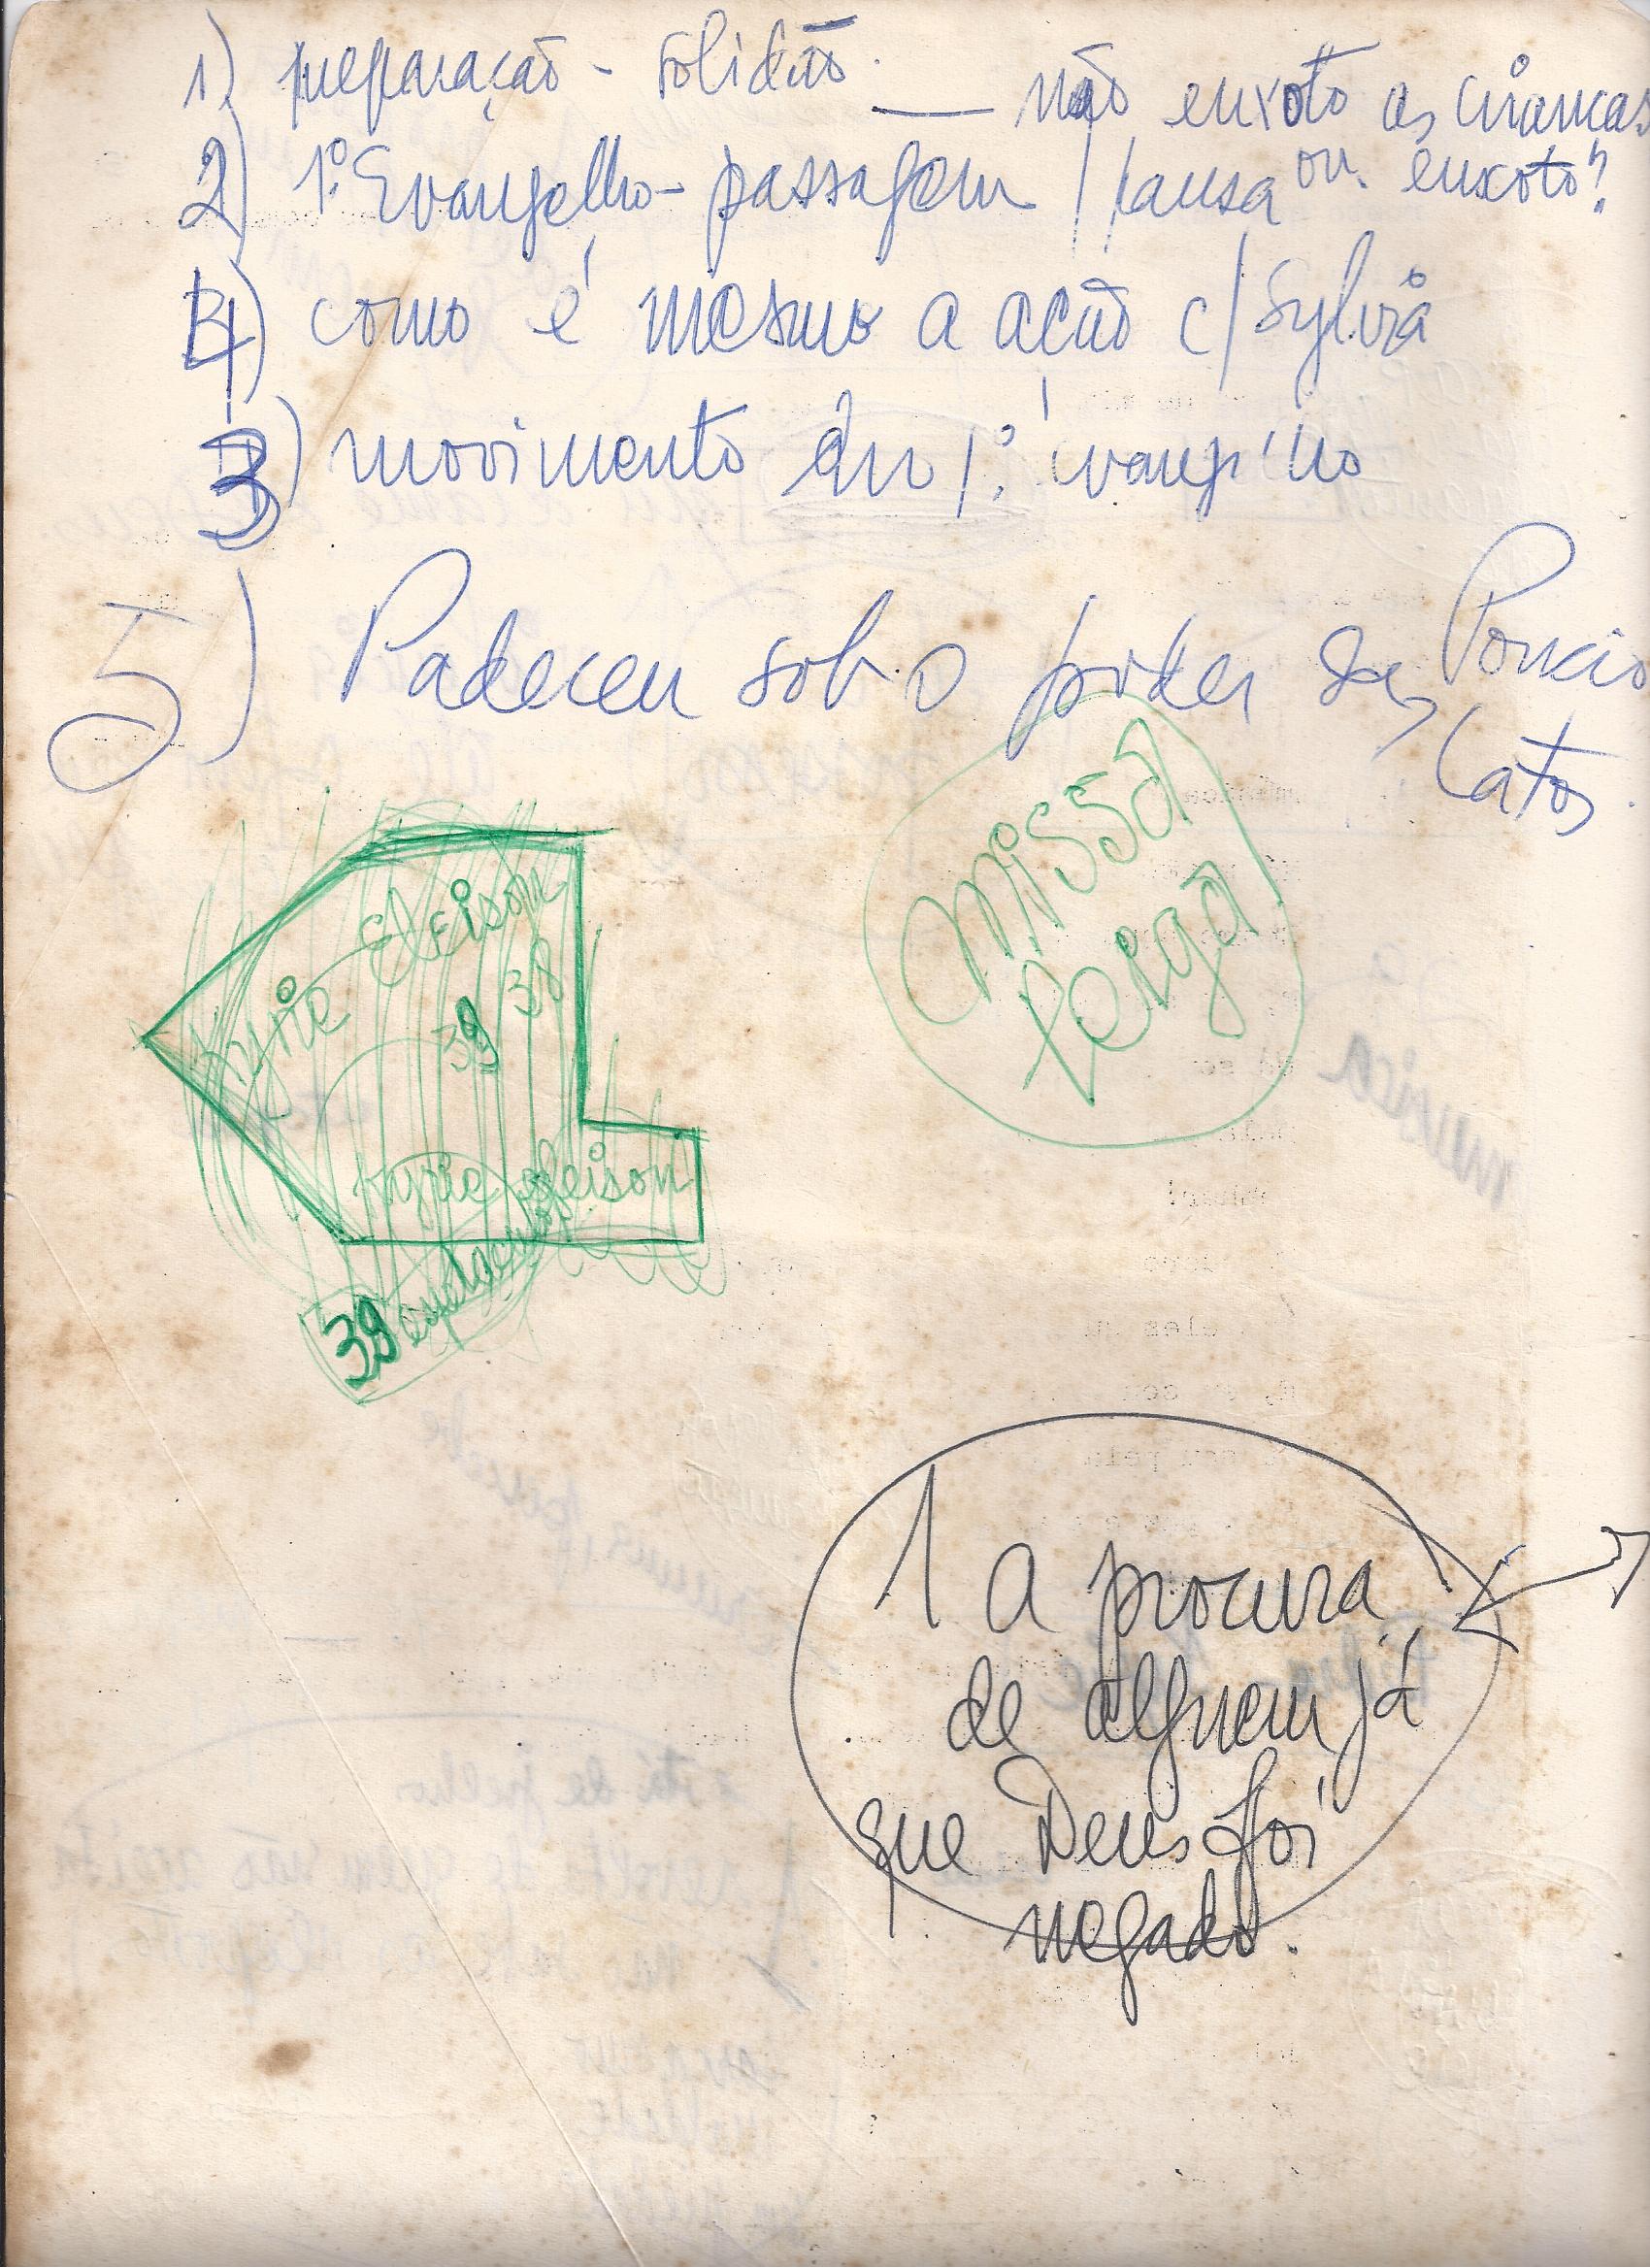 1) preparação - solidão. — não enxoto as crianças
2) 1º Evangelho - passagem / pausa ou enxoto?
4) como é mesmo a ação c/ Sylvia
3) movimento do 1º
5) Padeceu sob o poder de Poncio
Latos.
missa
Leiga
Kyrie Eleison
39 38
Kyrie eleison
39
1 A procura
de alguem já
que Deus foi
negado.